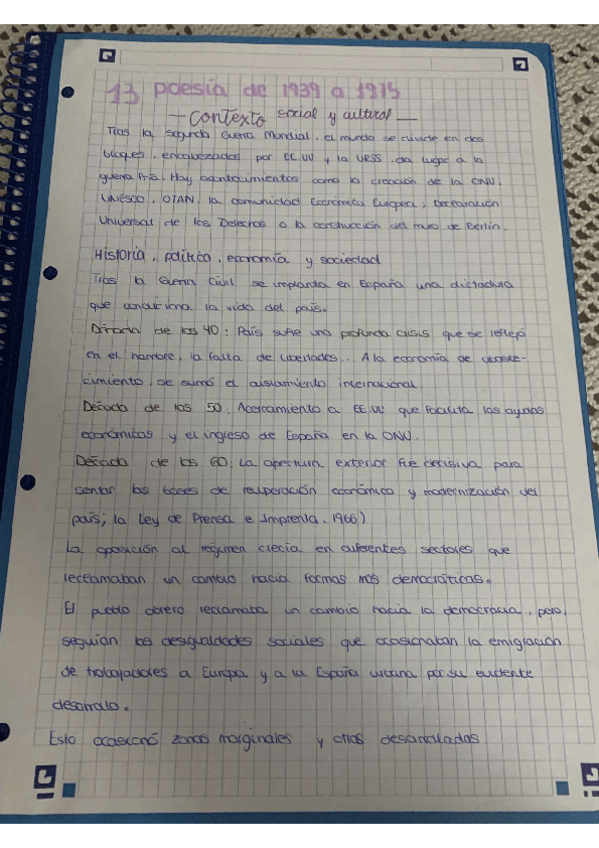 13 poesía de 1939 a 1975
- Contexto social y cultural -
Tras la segunda Guerra Mundial, el mundo se divide en dos
bloques, encabezados por EE.UU y la URSS, da lugar a la
guerra fría. Hay acontecimientos como la creación de la ONU,
UNESCO, OTAN, la comunidad Económica Europea, Declaración
Universal de los Derechos o la construcción del muro de Berlín.
Historia, política, economía y sociedad
Tras la Guerra Civil se implanta en España una dictadura
que condiciona la vida del país.
Década de los 40: País sufre una profunda crisis que se reflejó
en el hambre, la falta de libertades... A la economía de
cimiento se sumó el aislamiento internacional.
Década de los 50. Acercamiento a EE.UU que facilita las ayudas
económicas y el ingreso de España en la ONU.
Década de los 60: La apertura exterior fue decisiva para
sentar las bases de recuperación económica y modernización del
país; la Ley de Prensa e Imprenta. 1966)
La oposición al régimen crecía en diferentes sectores que
reclamaban un cambio hacia formas más democráticas.
El pueblo obrero reclamaba un cambio hacia la democracia, pero,
seguían las desigualdades sociales que ocasionaban la emigración
de trabajadores a Europa y a la España urbana por su evidente
desarrollo.
Esto ocasionó zonas marginales y otras desarrolladas